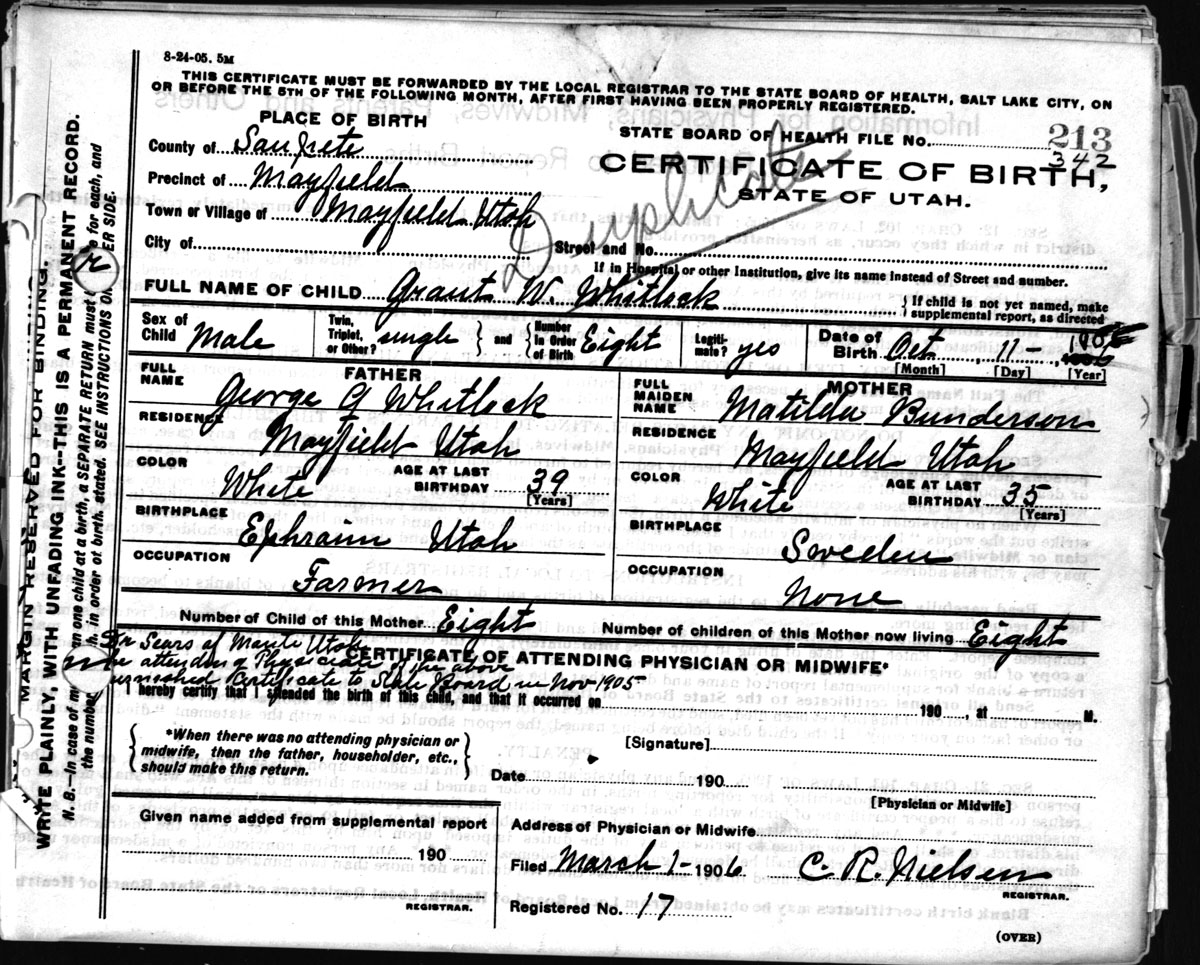 8-24-05. 5M
THIS CERTIFICATE MUST BE FORWARDED BY THE LOCAL REGISTRAR TO THE STATE BOARD OF HEALTH, SALT LAKE CITY, ON
OR BEFORE THE 5TH OF THE FOLLOWING MONTH, AFTER FIRST HAVING BEEN PROPERLY REGISTERED.
PLACE OF BIRTH
County of Sanpete
Precinct of Mayfield
Town or Village of Mayfield Utah
City of
STATE BOARD OF HEALTH FILE NO. 213
342
CERTIFICATE OF BIRTH,
STATE OF UTAH.
Duplicate
Street and No.
If in Hospital or other Institution, give its name instead of Street and number.
FULL NAME OF CHILD Grant W. Whitlock { If child is not yet named, make supplemental report, as directed
Sex of Child Male Twin, Triplet, or Other? single } and { Number in Order of Birth Eight Legiti-mate? yes Date of Birth Oct 11 - 1905
[Month] [Day] [Year]
FATHER
FULL NAME George G Whitlock
RESIDENCE Mayfield Utah
COLOR White AGE AT LAST BIRTHDAY 39
[Years]
BIRTHPLACE Ephraim Utah
OCCUPATION Farmer
MOTHER
FULL MAIDEN NAME Matilda Bunderson
RESIDENCE Mayfield Utah
COLOR White AGE AT LAST BIRTHDAY 35
[Years]
BIRTHPLACE Sweden
OCCUPATION None
Number of Child of this Mother Eight Number of children of this Mother now living Eight
Sears of Manti Utah
attending Physician of the above
furnished Certificate to State Board in Nov 1905
CERTIFICATE OF ATTENDING PHYSICIAN OR MIDWIFE*
I hereby certify that I attended the birth of this child, and that it occurred on 190 , at M.
{ *When there was no attending physician or
midwife, then the father, householder, etc.,
should make this return. }
[Signature]
Date 190
[Physician or Midwife]
Given name added from supplemental report
190
REGISTRAR.
Address of Physician or Midwife
Filed March 1 - 1906 C. R. Nielsen
REGISTRAR.
Registered No. 17
(OVER)
MARGIN RESERVED FOR BINDING.
WRITE PLAINLY, WITH UNFADING INK---THIS IS A PERMANENT RECORD.
N.B.--In case of an one child at a birth, a SEPARATE RETURN must for each, and
the number h, in order of birth, stated. SEE INSTRUCTIONS ON SIDE.